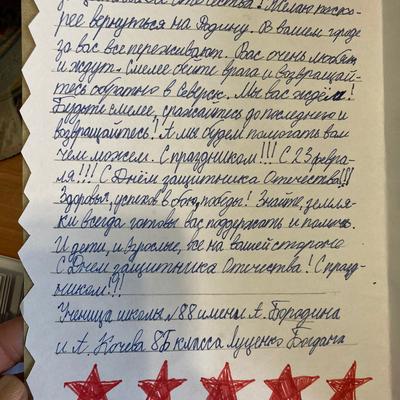 защитника Отечества! Желаю поско-
рее вернуться на Родину. В вашем городе
за вас все переживают. Вас очень любят
и ждут. Смелее бейте врага и возвращай-
тесь обратно в Северск. Мы вас ждём!
Будьте смелее, сражайтесь до последнего и
возвращайтесь! А мы будем помогать вам
чем можем. С праздником!!! С 23 февра-
ля!!! С Днём защитника Отечества!!!
Здоровья, успехов в бою, победы! Знайте, земля-
ки всегда готовы вас поддержать и помочь.
И дети, и взрослые, все на вашей стороне
С Днем защитника Отечества! С празд-
ником!!!
Ученица школы №88 имени А. Бородина
и А. Кочева 8Б класса Луценко Богдана